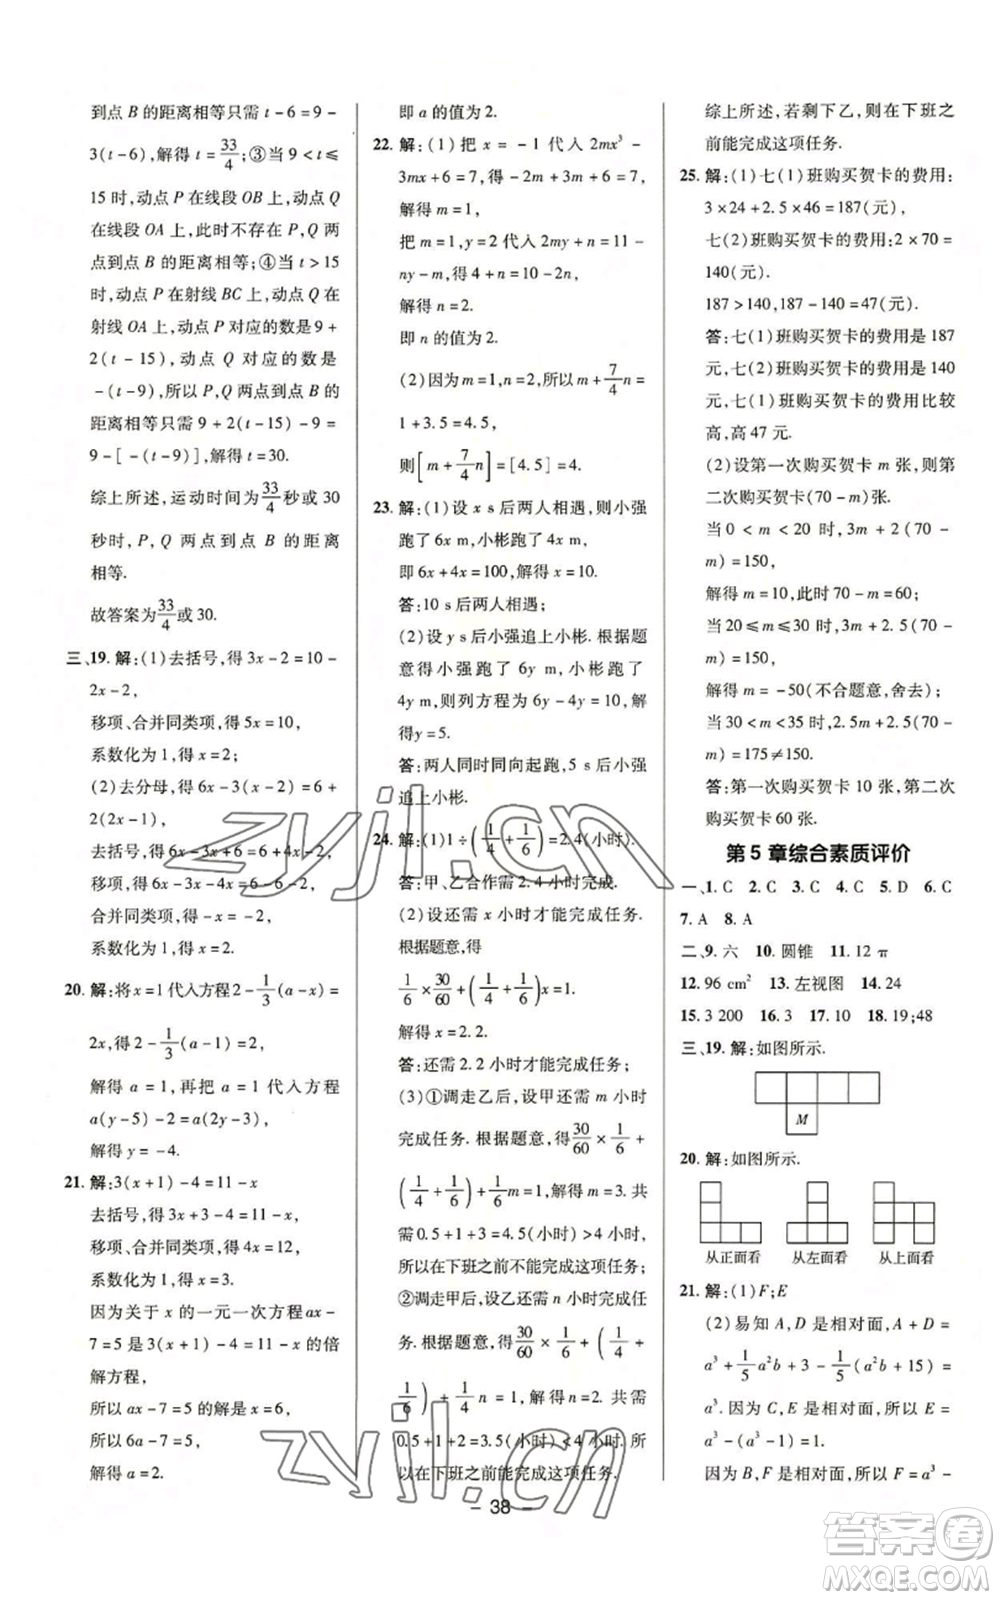 到点 B 的距离相等只需 t－6＝9－
3(t－6)，解得 t＝33/4；③当 9＜t≤
15 时，动点 P 在线段 OB 上，动点 Q
在线段 OA 上，此时不存在 P，Q 两
点到点 B 的距离相等；④当 t＞15
时，动点 P 在射线 BC 上，动点 Q 在
射线 OA 上，动点 P 对应的数是 9＋
2(t－15)，动点 Q 对应的数是
－(t－9)，所以 P，Q 两点到点 B 的
距离相等只需 9＋2(t－15)－9＝
9－[－(t－9)]，解得 t＝30.
综上所述，运动时间为33/4秒或 30
秒时，P，Q 两点到点 B 的距离
相等.
故答案为33/4或 30.
三、19. 解：(1)去括号，得 3x－2＝10－
2x－2，
移项、合并同类项，得 5x＝10，
系数化为 1，得 x＝2；
(2)去分母，得 6x－3(x－2)＝6＋
2(2x－1)，
去括号，得 6x－3x＋6＝6＋4x－2，
移项，得 6x－3x－4x＝6－6－2，
合并同类项，得 －x＝－2，
系数化为 1，得 x＝2.
20. 解：将 x＝1 代入方程 2－1/3(a－x)＝
2x，得 2－1/3(a－1)＝2，
解得 a＝1，再把 a＝1 代入方程
a(y－5)－2＝a(2y－3)，
解得 y＝－4.
21. 解：3(x＋1)－4＝11－x
去括号，得 3x＋3－4＝11－x，
移项、合并同类项，得 4x＝12，
系数化为 1，得 x＝3.
因为关于 x 的一元一次方程 ax－
7＝5 是 3(x＋1)－4＝11－x 的倍
解方程，
所以 ax－7＝5 的解是 x＝6，
所以 6a－7＝5，
解得 a＝2.
即 a 的值为 2.
22. 解：(1) 把 x＝－1 代入 2mx³－
3mx＋6＝7，得 －2m＋3m＋6＝7，
解得 m＝1，
把 m＝1，y＝2 代入 2my＋n＝11－
ny－m，得 4＋n＝11－2n－1，
解得 n＝2.
即 n 的值为 2.
(2)因为 m＝1，n＝2，所以 m＋7/4n＝
1＋3.5＝4.5，
则[m＋7/4n]＝[4.5]＝4.
23. 解：(1)设 x s 后两人相遇，则小强
跑了 6x m，小彬跑了 4x m，
即 6x＋4x＝100，解得 x＝10.
答：10 s 后两人相遇；
(2)设 y s 小强追上小彬. 根据题
意得小强跑了 6y m，小彬跑了
4y m，则列方程为 6y－4y＝10，解
得 y＝5.
答：两人同时同向起跑，5 s 后小
强追上小彬.
24. 解：(1)1÷(1/4＋1/6)＝2.4(小时).
答：甲、乙合作需 2.4 小时完成.
(2)设还需 x 小时才能完成任务.
根据题意，得
1/6×30/60＋(1/4＋1/6)x＝1.
解得 x＝2.2.
答：还需 2.2 小时才能完成任务；
(3)①调走乙后，设甲还需 m 小时
完成任务. 根据题意，得30/60×1/6＋
(1/4＋1/6)＋1/4m＝1，解得 m＝2. 共
需 0.5＋1＋3＝4.5(小时)＞4 小时，
所以在下班之前不能完成这项任务；
②调走甲后，设乙还需 n 小时完成
任务. 根据题意，得30/60×1/6＋(1/4＋
1/6)＋1/4n＝1，解得 n＝2. 共需
0.5＋1＋2＝3.5(小时)＜4 小时. 所
以在下班之前能完成这项任务.
综上所述，若剩下乙，则在下班之
前能完成这项任务.
25. 解：(1)七(1)班购买贺卡的费用：
3×24＋2.5×46＝187(元)，
七(2)班购买贺卡的费用：2×70＝
140(元).
187＞140，187－140＝47(元).
答：七(1)班购买贺卡的费用是 187
元，七(2)班购买贺卡的费用是 140
元，七(1)班购买贺卡的费用比较
高，高 47 元.
(2)设第一次购买贺卡 m 张，则第
二次购买贺卡(70－m)张.
当 0＜m＜20 时，3m＋2(70－
m)＝150，
解得 m＝10，此时 70－m＝60；
当 20≤m≤30 时，2.5m＋2(70－
m)＝150，
解得 m＝－50(不合题意，舍去)；
当 30＜m＜35 时，2.5m＋2.5(70－
m)＝175≠150.
答：第一次购买贺卡 10 张，第二次
购买贺卡 60 张.
第 5 章综合素质评价
一、1. C 2. C 3. C 4. C 5. D 6. C
7. A 8. A
二、9. 六 10. 圆锥 11. 12 π
12. 96 cm² 13. 左视图 14. 24
15. 3 200 16. 3 17. 10 18. 19；48
三、19. 解：如图所示.
M
20. 解：如图所示.
从正面看 从左面看 从上面看
21. 解：(1)F；E
(2)易知 A，D 是相对面，A＋D＝
a³＋1/5a²b＋3－1/5(a²b＋15)＝
a³. 因为 C，E 是相对面，所以 E＝
a³－(a³－1)＝1.
因为 B，F 是相对面，所以 F＝a³－
－ 38 －
zyjl.cn
zyjl.cn
答案卷
MXQE.COM